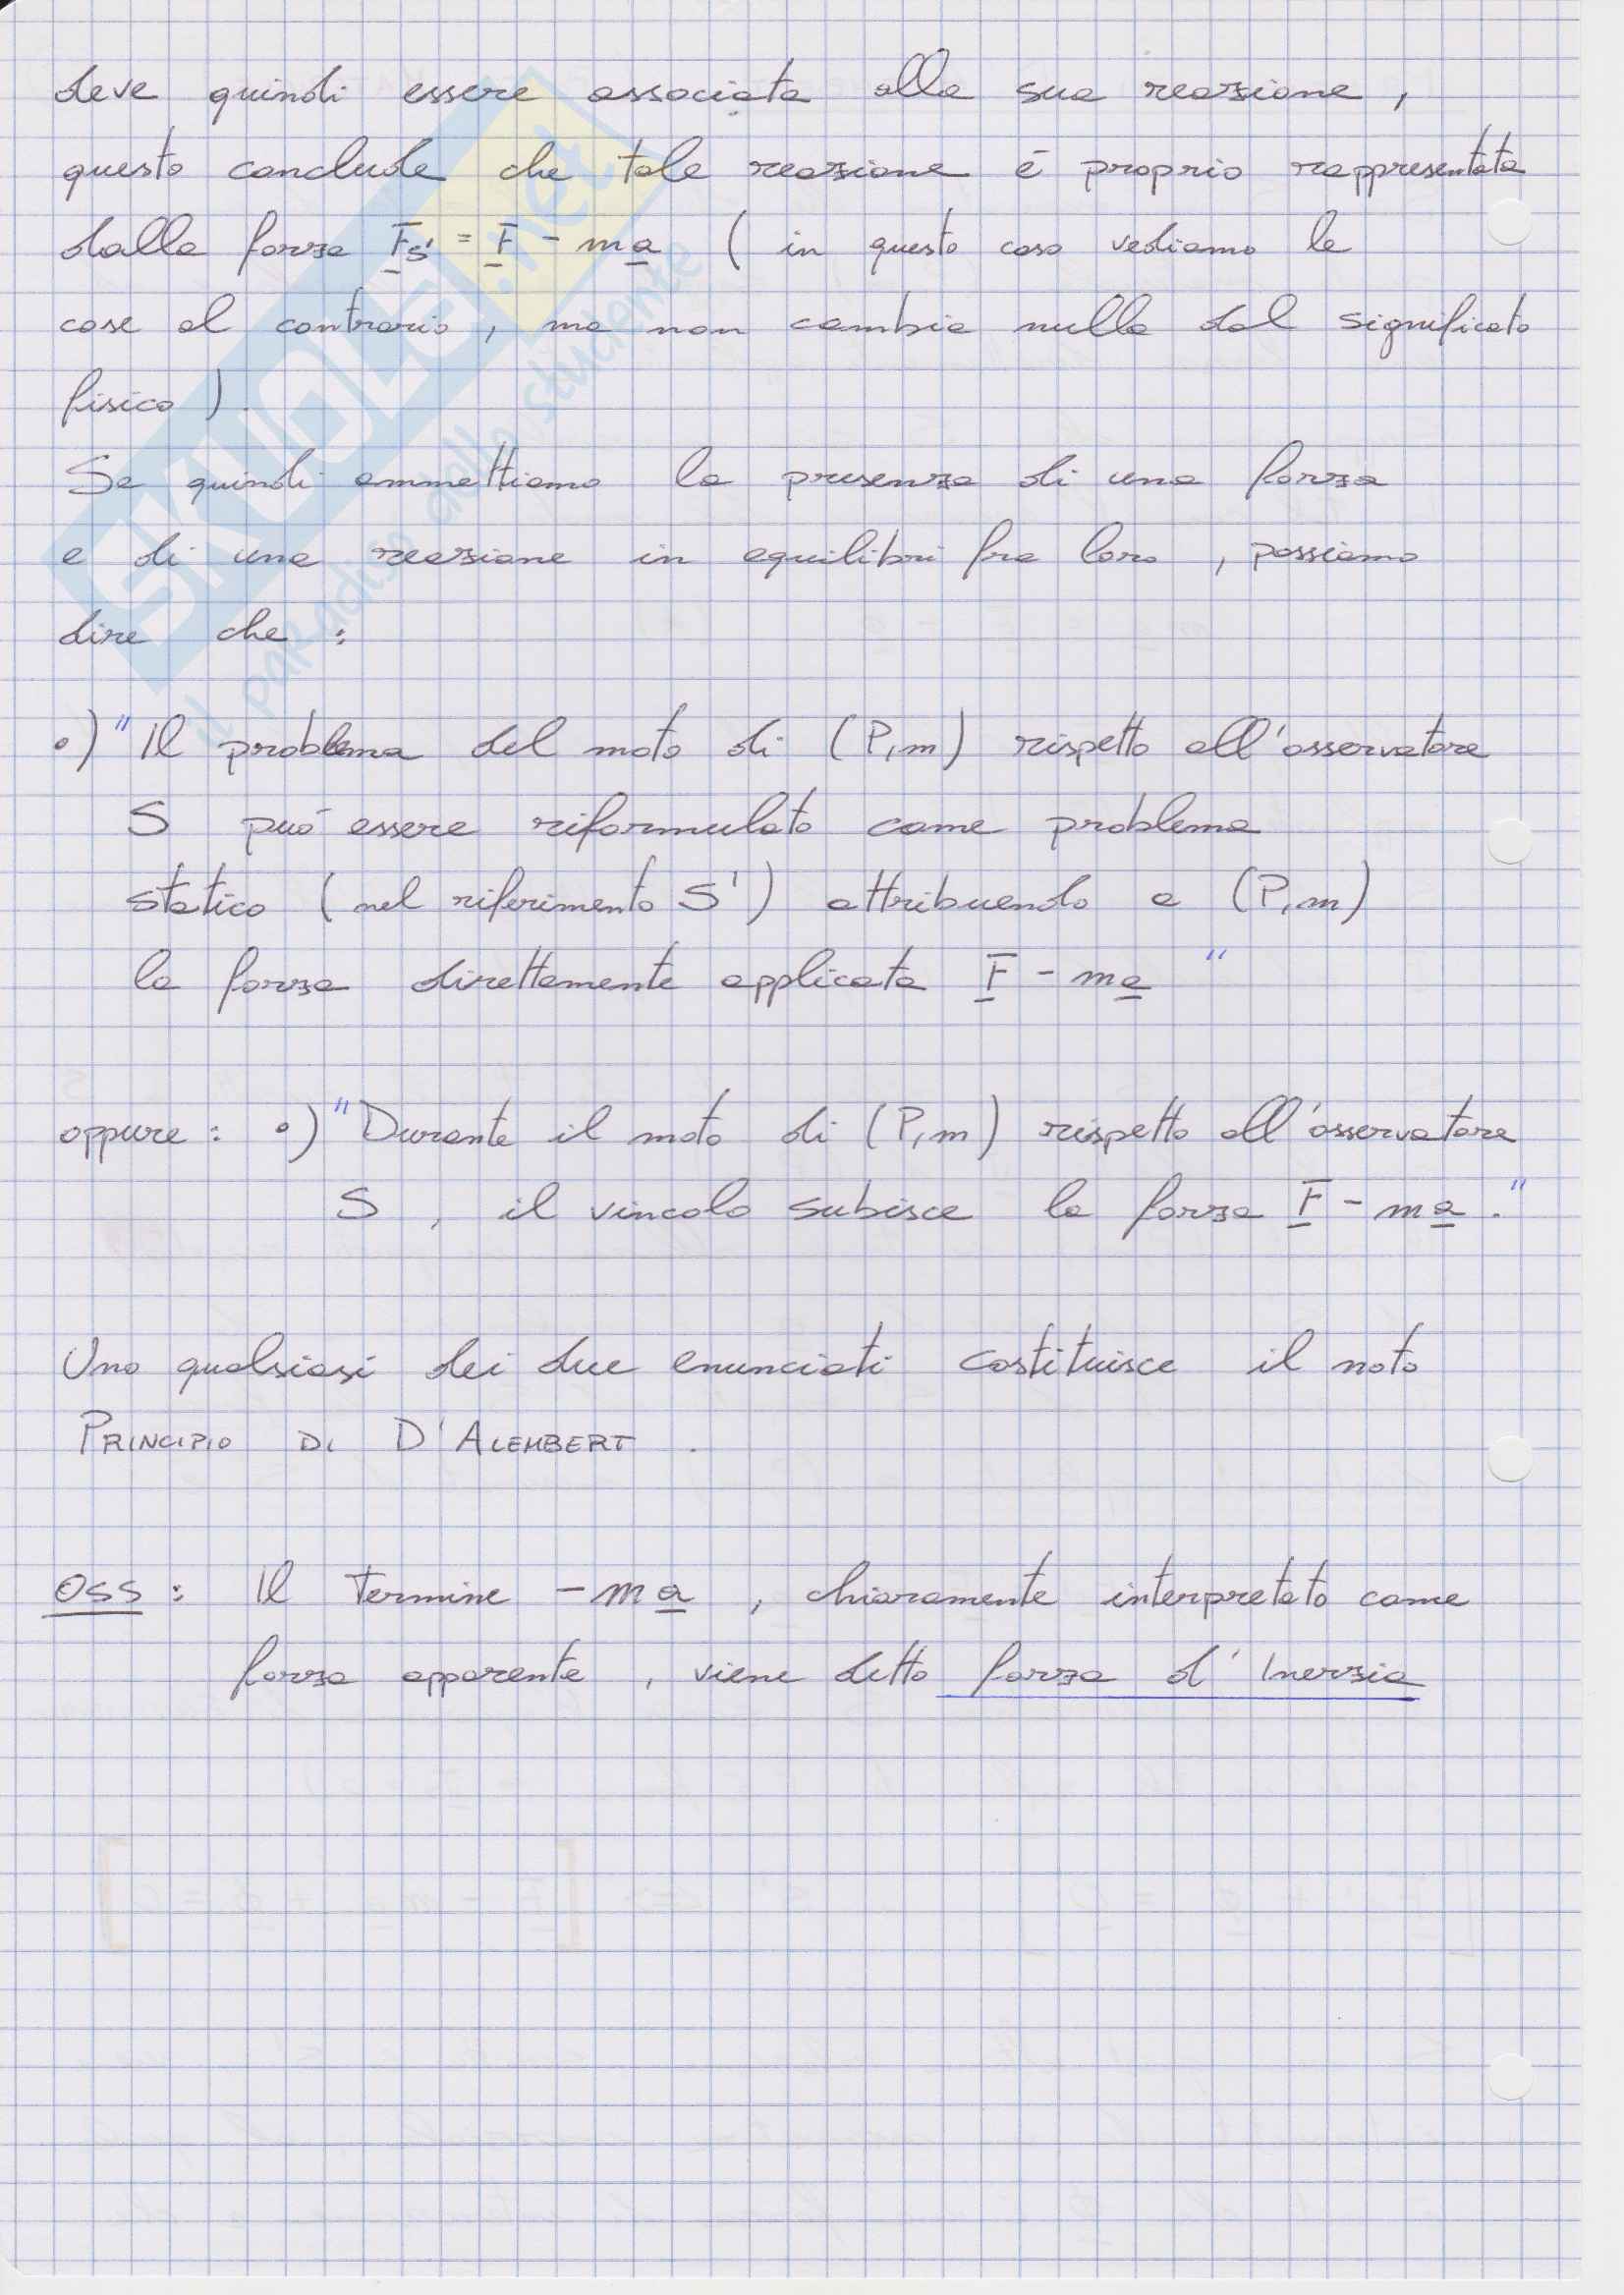 deve quindi essere associata alla sua reazione,
questo conclude che tale reazione è proprio rappresentata
dalla forza F_S' = F - ma ( in questo caso vediamo le
cose al contrario, ma non cambia nulla dal significato
fisico ).
Se quindi ammettiamo la presenza di una forza
e di una reazione in equilibri fra loro, possiamo
dire che :
•) " Il problema del moto di (P,m) rispetto all'osservatore
S può essere riformulato come problema
statico ( nel riferimento S' ) attribuendo a (P,m)
la forza direttamente applicata F - ma "
oppure : •) " Durante il moto di (P,m) rispetto all'osservatore
S , il vincolo subisce la forza F - ma . "
Uno qualsiasi dei due enunciati costituisce il noto
PRINCIPIO DI D'ALEMBERT .
OSS : Il termine - ma , chiaramente interpretato come
forza apparente , viene detto forza d'Inerzia
SKUOLA.net
il paradiso dello studente